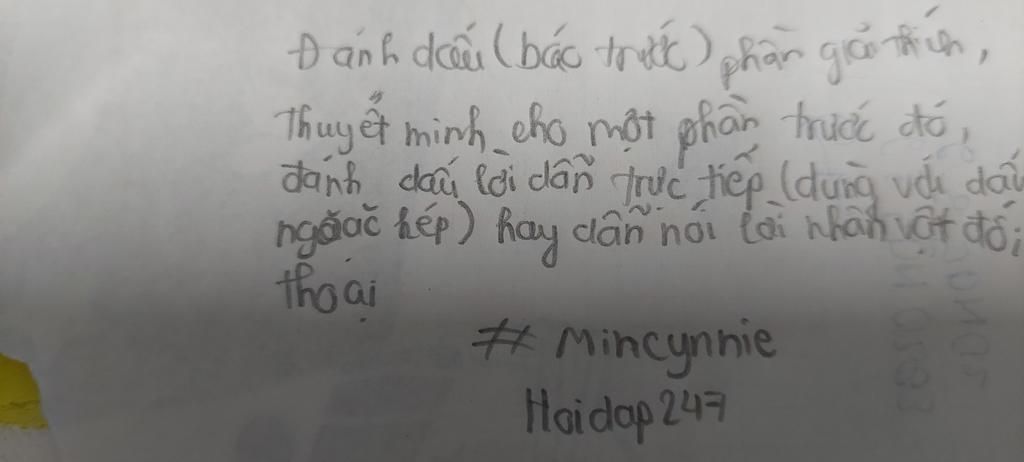 Đánh dấu (bác trước) phần giải thích,
thuyết minh cho một phần trước đó,
đánh dấu lời dẫn trực tiếp (dùng với dấu
ngoặc kép) hay dẫn nói lời nhân vật đối
thoại
# Mincynnie
Hoidap247